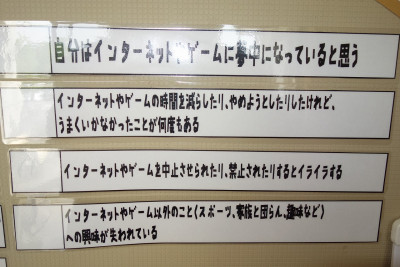 自分はインターネットやゲームに夢中になっていると思う
インターネットやゲームの時間を減らしたり、やめようとしたりしたけれど、
うまくいかなかったことが何度もある
インターネットやゲームを中止させられたり、禁止されたりするとイライラする
インターネットやゲーム以外のこと(スポーツ、家族と団らん、趣味など)
への興味が失われている